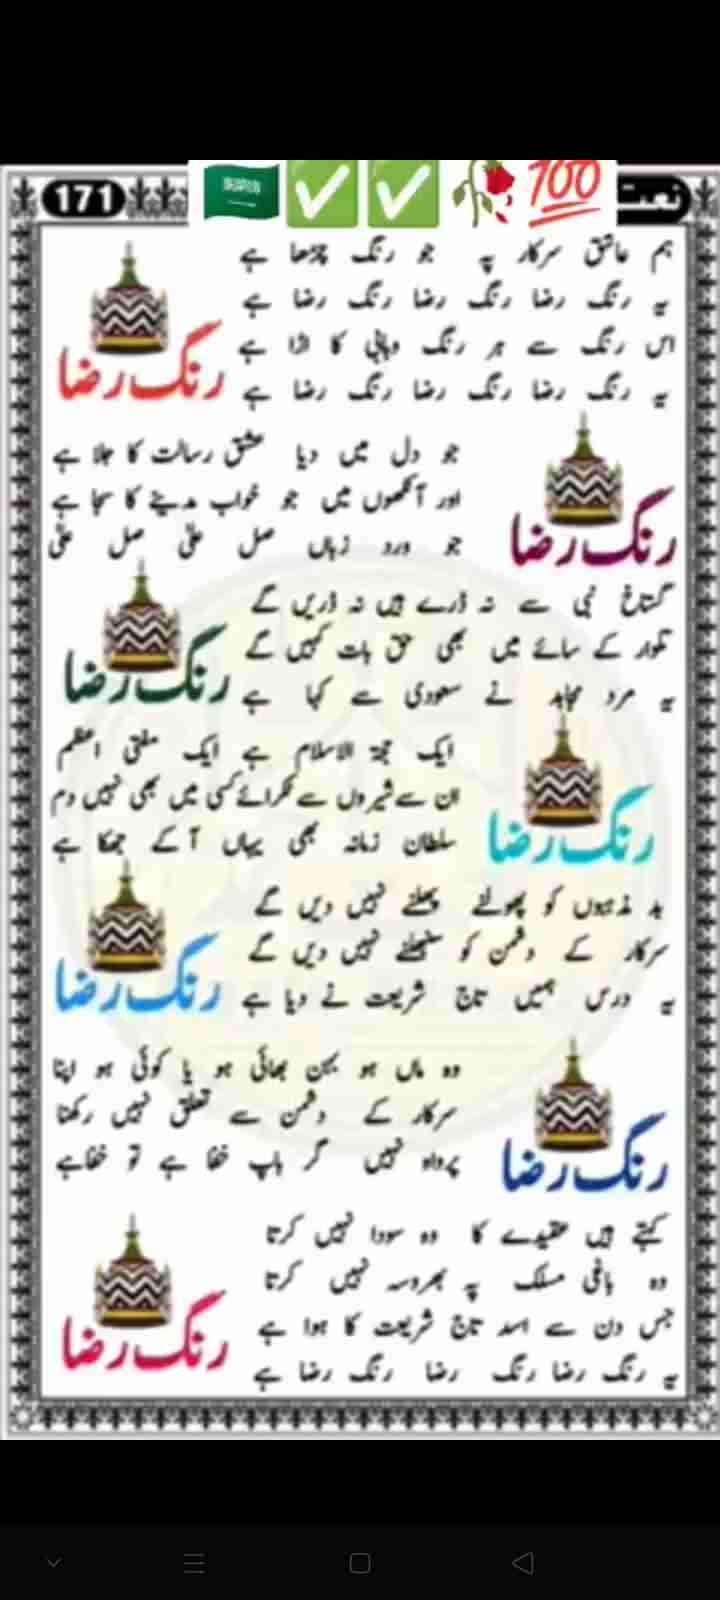 171
نعت
ہم عاشق سرکار پہ جو رنگ چڑھا ہے
یہ رنگ رضا رنگ رضا رنگ رضا ہے
اس رنگ سے ہر رنگ وہابی کا اڑا ہے
یہ رنگ رضا رنگ رضا رنگ رضا ہے
رنگ رضا
جو دل میں دیا عشق رسالت کا جلا ہے
اور آنکھوں میں جو خواب مدینے کا سجا ہے
جو ورد زباں صل علیٰ صل علیٰ
رنگ رضا
گستاخ نبی سے نہ ڈرے ہیں نہ ڈریں گے
تلوار کے سائے میں بھی حق بات کہیں گے
یہ مرد مجاہد نے سعودی سے کہا ہے
رنگ رضا
ایک حجۃ الاسلام ہے ایک مفتی اعظم
ان سے شیروں سے ٹکرائے کسی میں بھی نہیں دم
سلطان زمانہ بھی یہاں آ کے جھکا ہے
رنگ رضا
بد مذہبوں کو پھولنے پھلنے نہیں دیں گے
سرکار کے دشمن کو سنبھلنے نہیں دیں گے
یہ درس ہمیں تاج شریعت نے دیا ہے
رنگ رضا
وہ ماں ہو بہن بھائی ہو یا کوئی ہو اپنا
سرکار کے دشمن سے تعلق نہیں رکھنا
پرواہ نہیں گر باپ خفا ہے تو خفا ہے
رنگ رضا
کہتے ہیں عقیدے کا وہ سودا نہیں کرتا
وہ باغی مسلک پہ بھروسہ نہیں کرتا
جس دن سے اسد تاج شریعت کا ہوا ہے
یہ رنگ رضا رنگ رضا رنگ رضا ہے
رنگ رضا